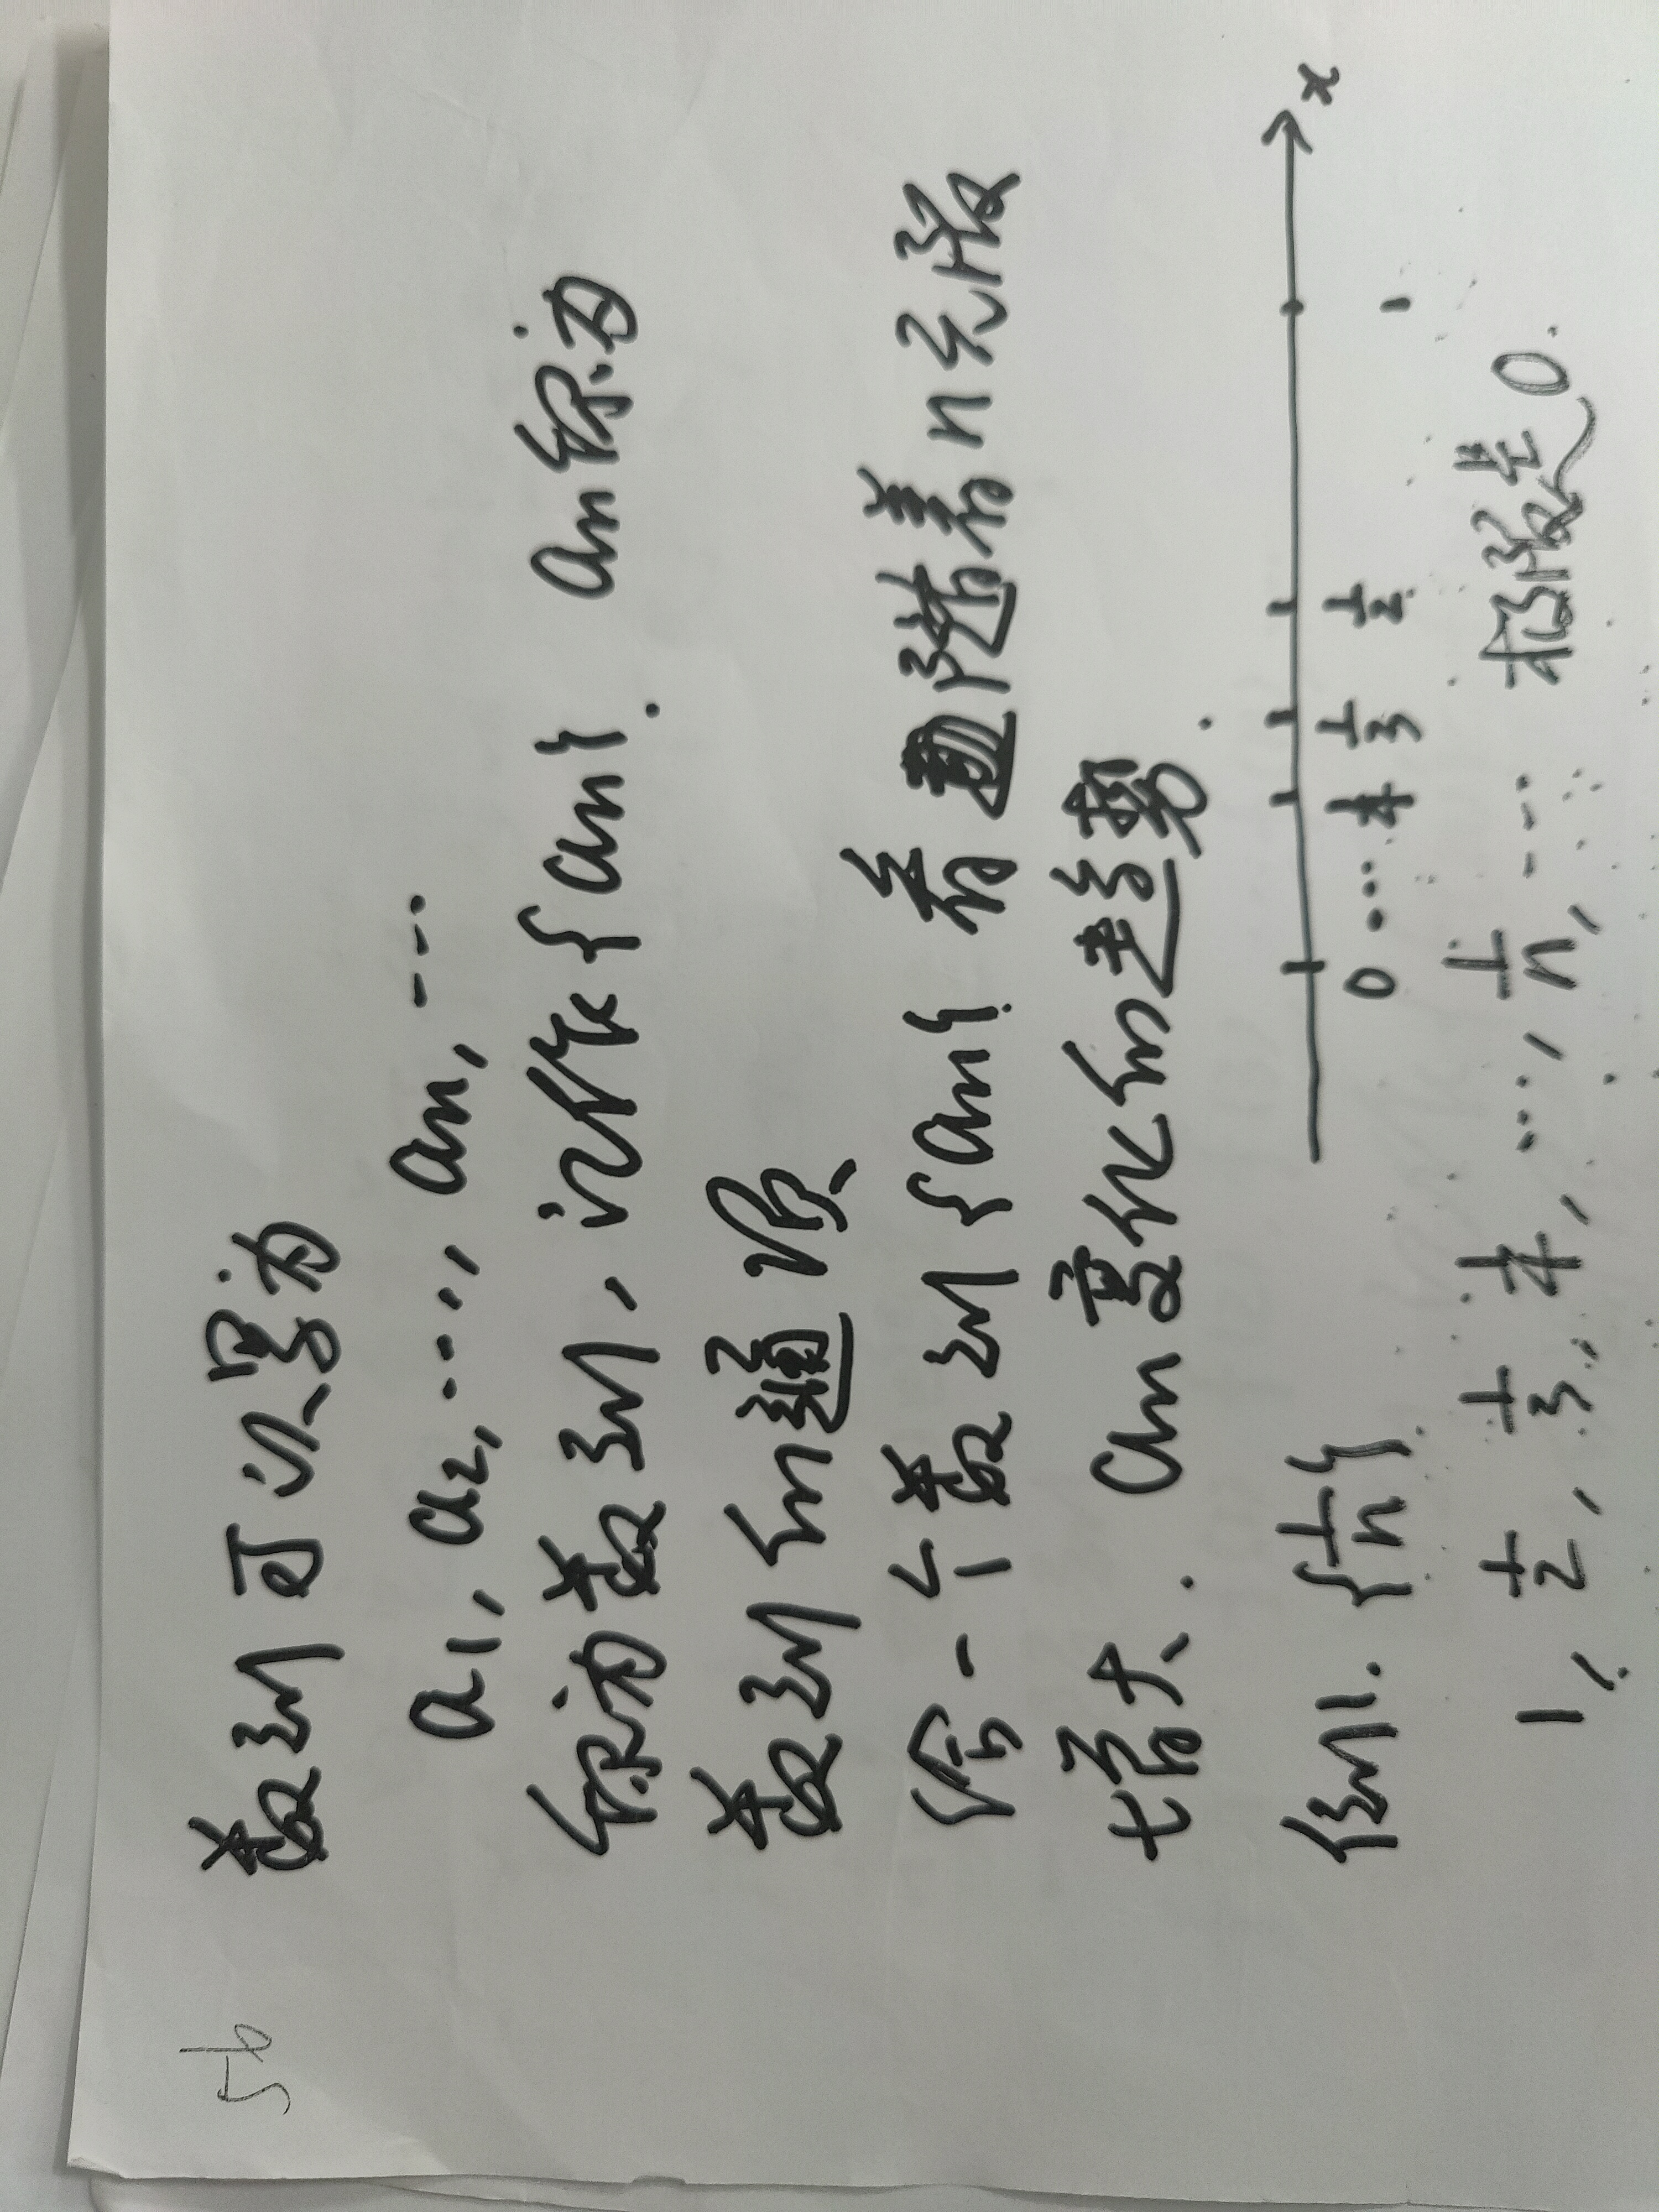 56
数列可以写为
a1, a2, …, an, …
称为数列, 记作{an}. an称为
数列的通项
给一个数列{an} 看随着n无限
增大. an变化的趋势.
例1. {1/n}
x
0 … 1/4 1/3 1/2 1
1, 1/2, 1/3, 1/4, …, 1/n, … 极限是0.